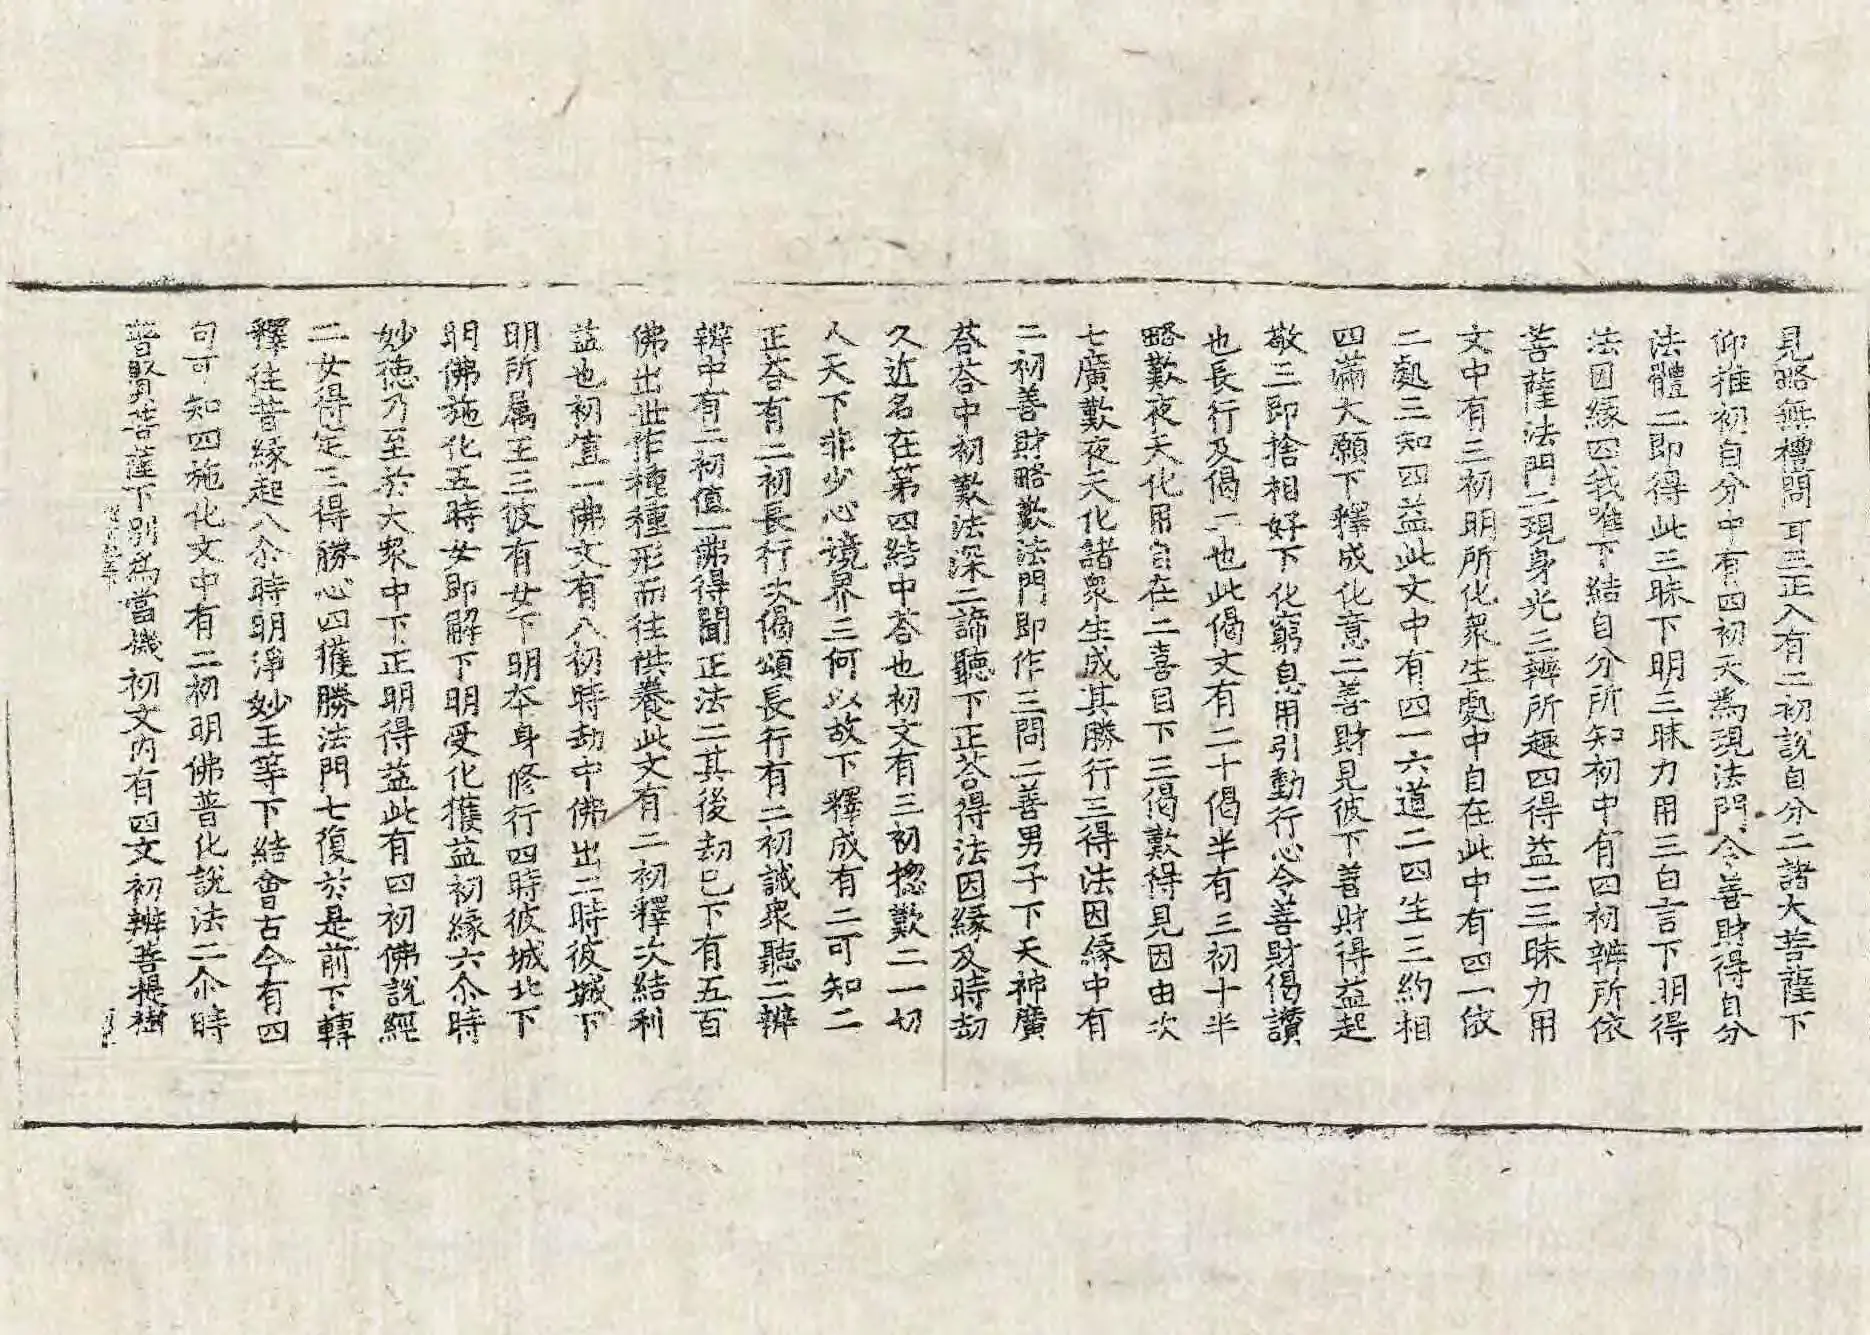 見略無禮問耳三正入有二初說自分二諸大菩薩下
仰推初自分中有四初天為現法門令善財得自分
法體二即得此三昧下明三昧力用三白言下明得
法因緣四我唯下結自分所知初中有四初辨所依
菩薩法門二現身光三辨所趣四得益二三昧力用
文中有三初明所化衆生處中自在此中有四一依
二處三知四益此文中有四一六道二四生三約相
四滿大願下釋成化意二善財見彼下善財得益起
敬三即捨相好下化窮息用引動行心令善財偈讚
也長行及偈二也此偈文有二十偈半有三初十半
略歎夜天化用自在二喜目下三偈歎得見因由次
七廣歎夜天化諸衆生成其勝行三得法因緣中有
二初善財略歎法門即作三問二善男子下天神廣
荅荅中初歎法深二諦聽下正荅得法因緣及時劫
久近名在第四結中荅也初文有三初揔歎二一切
人天下非少心境界三何以故下釋成有二可知二
正荅有二初長行次偈頌長行有二初誡衆聽二辨
辨中有二初值一佛得聞正法二其後劫已下有五百
佛出世作種種形而往供養此文有二初釋次結利
益也初值一佛文有八初時劫中佛出二時彼城下
明所属王三彼有女下明本身修行四時彼城北下
明佛施化五時女即解下明受化獲益初緣六尒時
妙德乃至於大衆中下正明得益此有四初佛說經
二女得定三得勝心四獲勝法門七復於是前下轉
釋往昔緣起八尒時明淨妙王等下結會古今有四
句可知四施化文中有二初明佛普化說法二尒時
普賢菩薩下別為當機初文內有四文初辨菩提樹